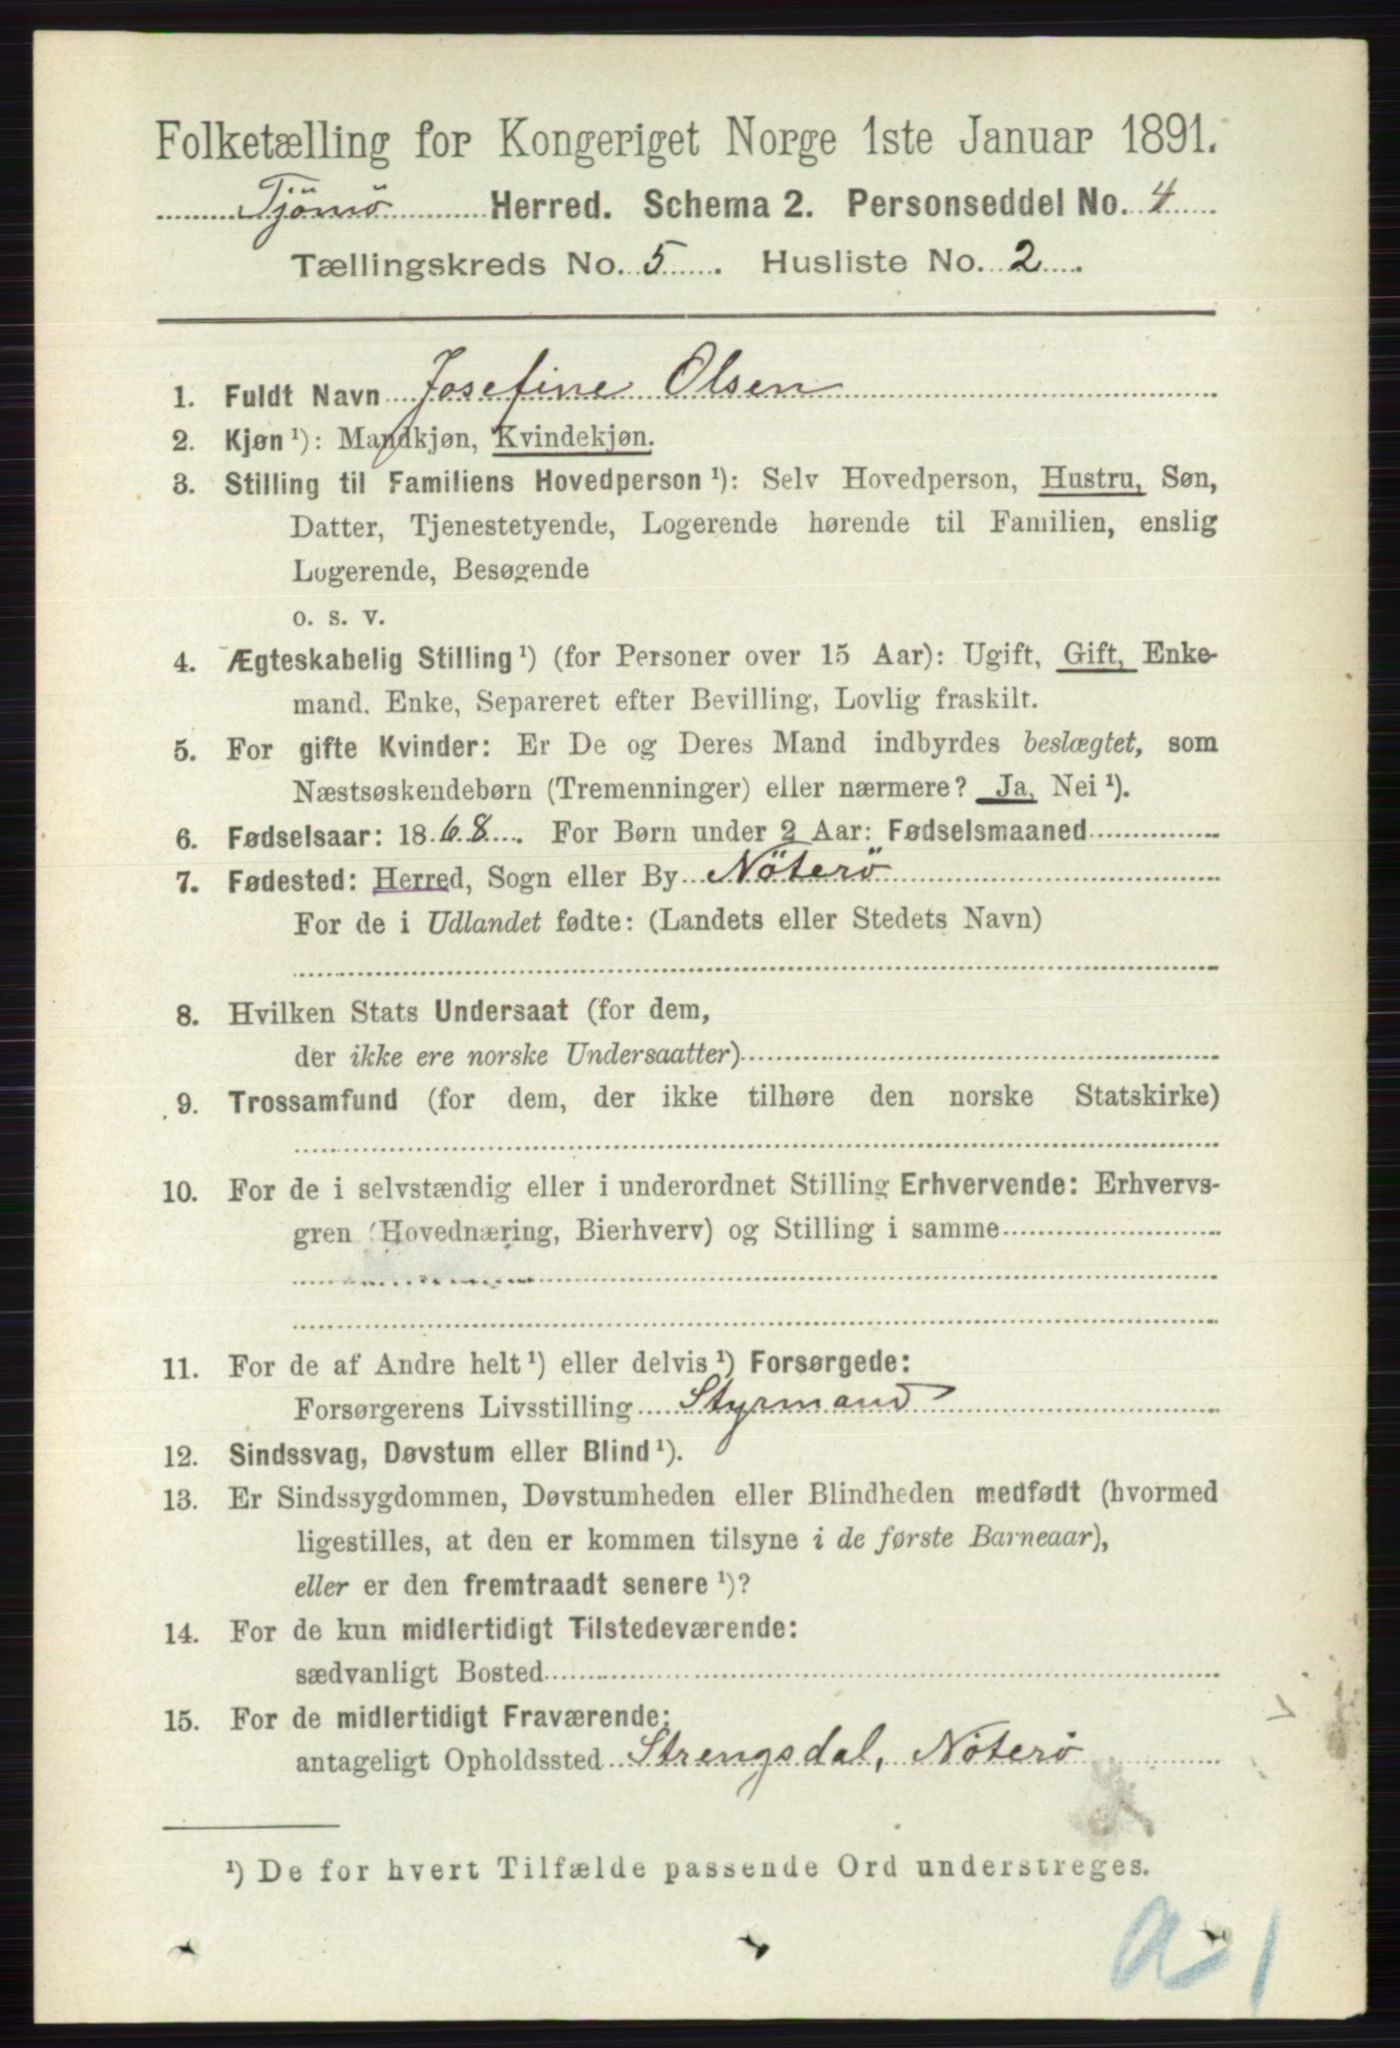 Folketælling for Kongeriget Norge 1ste Januar 1891.
Tjömö Herred. Schema 2. Personseddel No. 4
Tællingskreds No. 5. Husliste No. 2.
1. Fuldt Navn Josefine Olsen
2. Kjøn ¹): Mandkjøn, Kvindekjøn.
3. Stilling til Familiens Hovedperson ¹): Selv Hovedperson, Hustru, Søn,
Datter, Tjenestetyende, Logerende hørende til Familien, enslig
Logerende, Besøgende
o. s. v.
4. Ægteskabelig Stilling ¹) (for Personer over 15 Aar): Ugift, Gift, Enke-
mand, Enke, Separeret efter Bevilling, Lovlig fraskilt.
5. For gifte Kvinder: Er De og Deres Mand indbyrdes beslægtet, som
Næstsøskendebørn (Tremenninger) eller nærmere? Ja, Nei ¹).
6. Fødselsaar: 1868. For Børn under 2 Aar: Fødselsmaaned
7. Fødested: Herred, Sogn eller By Nöterö
For de i Udlandet fødte: (Landets eller Stedets Navn)
8. Hvilken Stats Undersaat (for dem,
der ikke ere norske Undersaatter)
9. Trossamfund (for dem, der ikke tilhøre den norske Statskirke)
10. For de i selvstændig eller i underordnet Stilling Erhvervende: Erhvervs-
gren (Hovednæring, Bierhverv) og Stilling i samme
11. For de af Andre helt ¹) eller delvis ¹) Forsørgede:
Forsørgerens Livsstilling Styrmand
12. Sindssvag, Døvstum eller Blind ¹).
13. Er Sindssygdommen, Døvstumheden eller Blindheden medfødt (hvormed
ligestilles, at den er kommen tilsyne i de første Barneaar),
eller er den fremtraadt senere ¹)?
14. For de kun midlertidigt Tilstedeværende:
sædvanligt Bosted
15. For de midlertidigt Fraværende:
antageligt Opholdssted Strengsdal, Nöterö
¹) De for hvert Tilfælde passende Ord understreges.
a 1